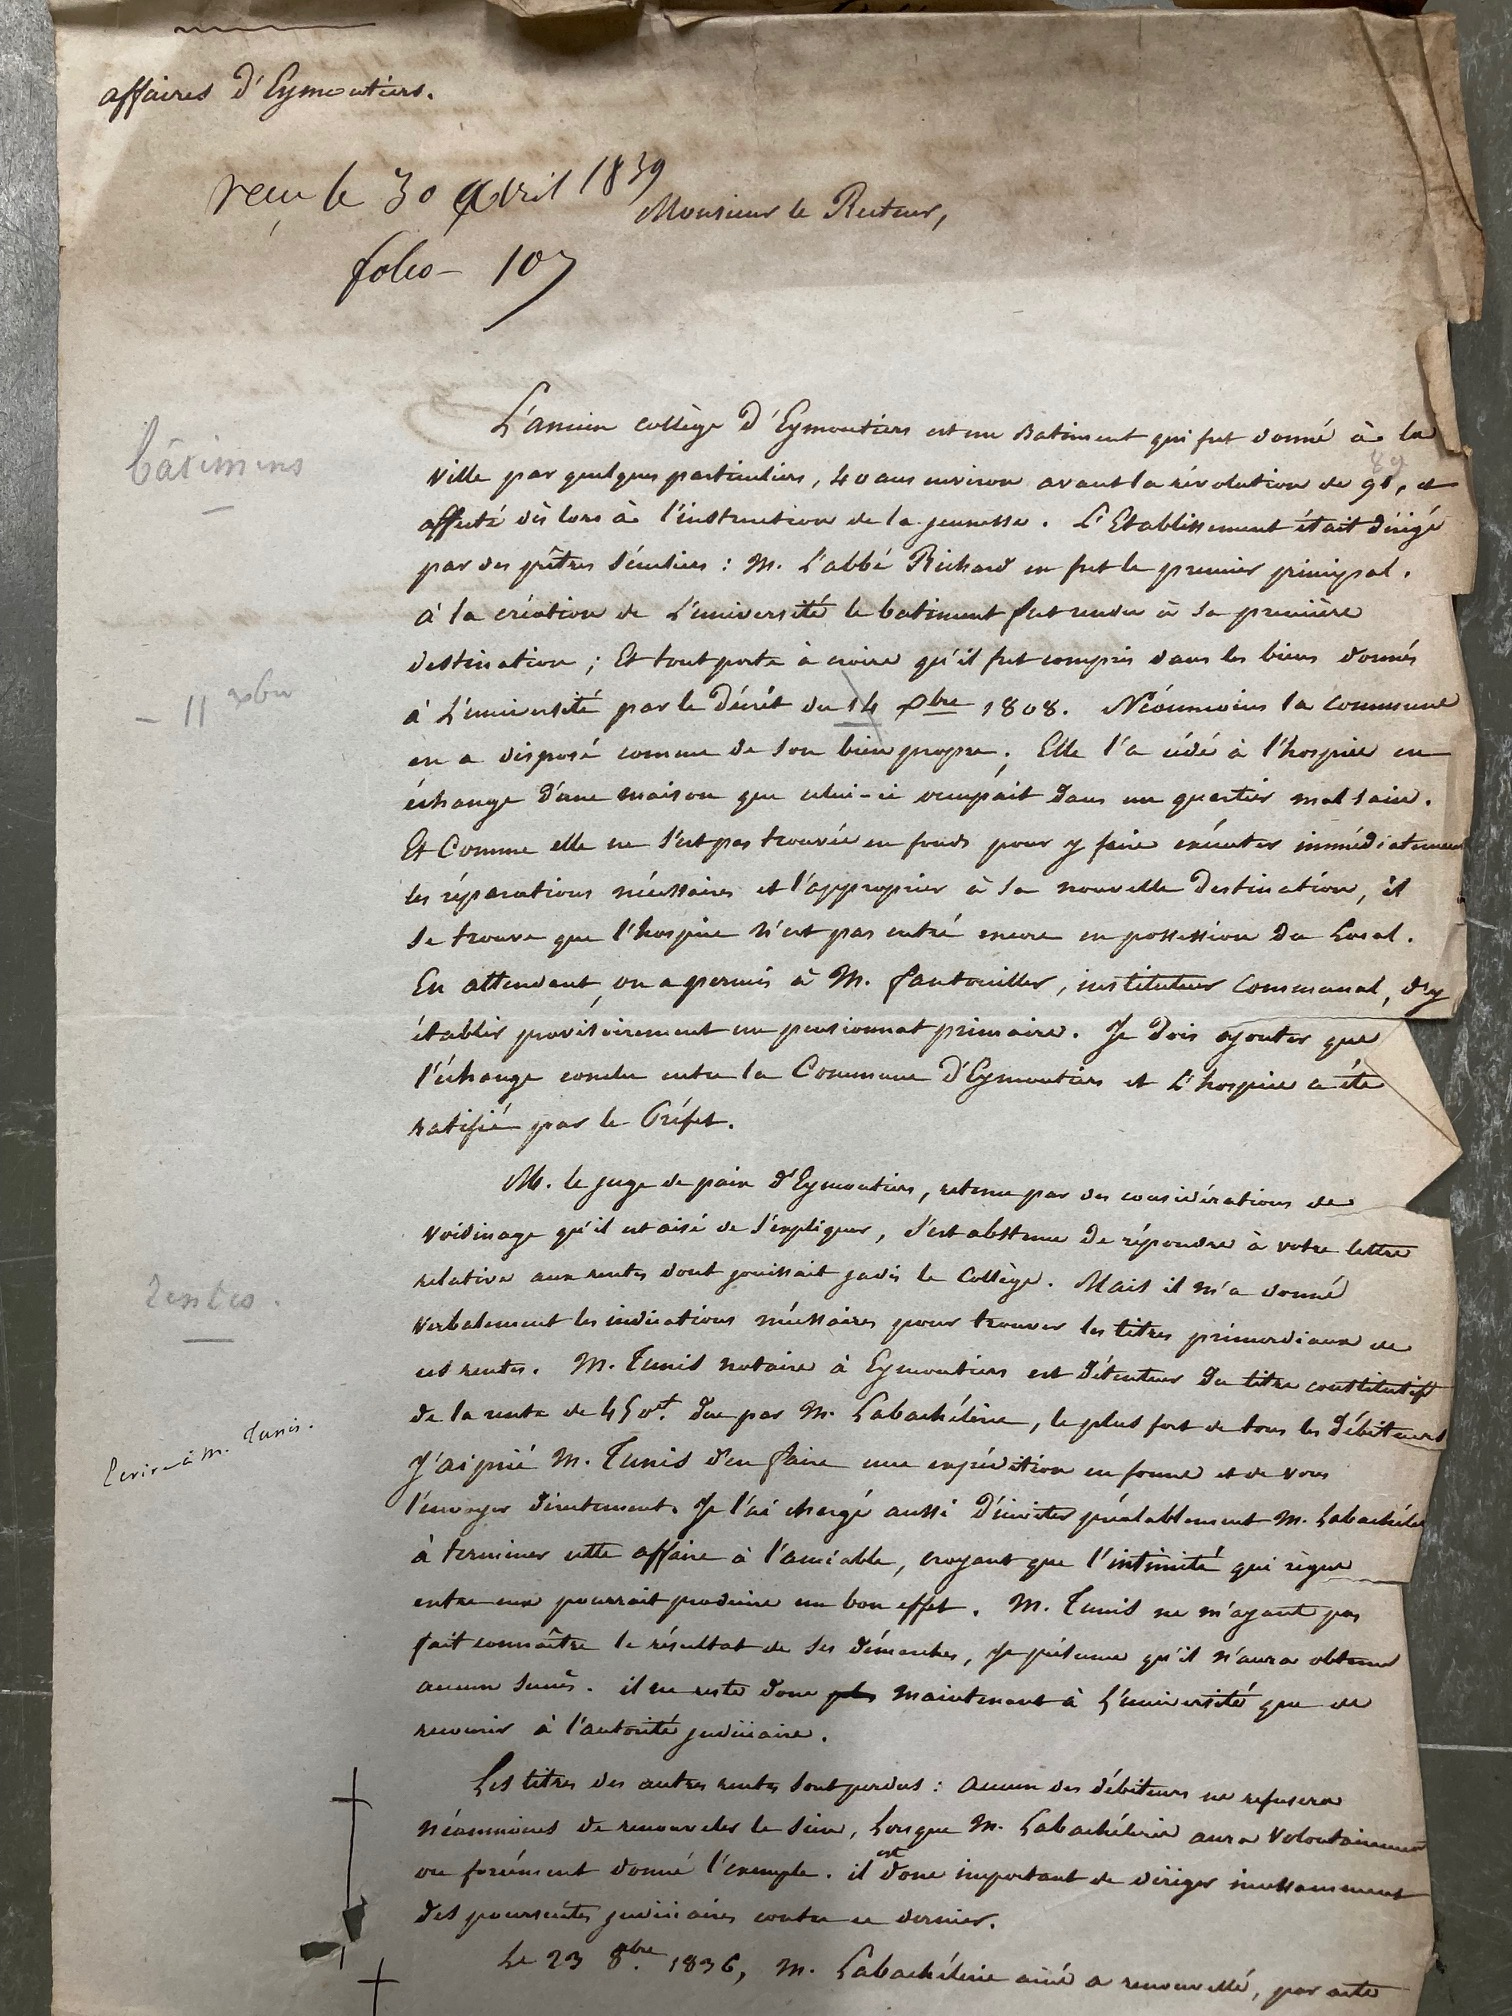 affaires d'Eymoutiers.
reçu le 30 avril 1839
Monsieur le Recteur,
folio - 107
bâtimens
L'ancien collège d'Eymoutiers est un Batiment qui fut donné à la
ville par quelques particuliers, 40 ans environ avant la révolution de 89, et
affecté dès lors à l'instruction de la jeunesse. L'Etablissement était dirigé
par des prêtres séculiers : M. L'abbé Richard en fut le premier principal.
à la création de L'université le batiment fut rendu à sa première
destination ; Et tout porte à croire qu'il fut compris dans les biens donnés
- 11 xbre
à L'université par le Décrêt du 14 xbre 1808. Néanmoins la commune
en a disposé comme de son bien propre. Elle l'a cédé à l'hospice en
échange d'une maison que celui-ci occupait dans un quartier mal sain.
Et Comme elle ne s'est pas trouvée en fonds pour y faire exécuter immédiatement
les réparations nécessaires et l'approprier à sa nouvelle Destination, il
se trouve que l'hospice n'est pas entré encore en possession du Local.
En attendant, on a permis à M. fantouiller, instituteur Communal, d'y
établir provisoirement un pensionnat primaire. Je Dois ajouter que
l'échange conclu entre la Commune d'Eymoutiers et L'hospice a été
ratifié par le Préfet.
M. le juge de paix d'Eymoutiers, retenu par des considérations de
voisinage qu'il est aisé de s'expliquer, s'est abstenu De répondre à votre lettre
rentes.
relative aux rentes dont jouissait jadis le Collège. Mais il m'a donné
verbalement les indications nécessaires pour trouver les titres primordiaux de
ces rentes. M. Tunis notaire à Eymoutiers est détenteur Du titre constitutif
de la rente de 450 f. due par M. Labachélerie, le plus fort de tous les Débiteurs
Ecrire à M. Tunis.
J'ai prié M. Tunis d'en faire une expédition en forme et de vous
l'envoyer directement. Je l'ai chargé aussi d'inviter préalablement M. Labachéle
à terminer cette affaire à l'amiable, croyant que l'intimité qui règne
entre eux pourrait produire un bon effet. M. Tunis ne m'ayant pas
fait connaître le résultat de ses démarches, Je présume qu'il n'aura obtenu
aucun succès. il ne reste donc plus maintenant à L'université que de
recourir à l'autorité judiciaire.
Les titres des autres rentes sont perdus : aucun des débiteurs ne refusera
néanmoins de renouveler le sien, Lorsque M. Labachélerie aura volontairement
ou forcément donné l'exemple. il est donc important de diriger incessamment
des poursuites judiciaires contre ce dernier.
Le 23 8bre 1836, M. Labachélerie aîné a renouvellé, par acte